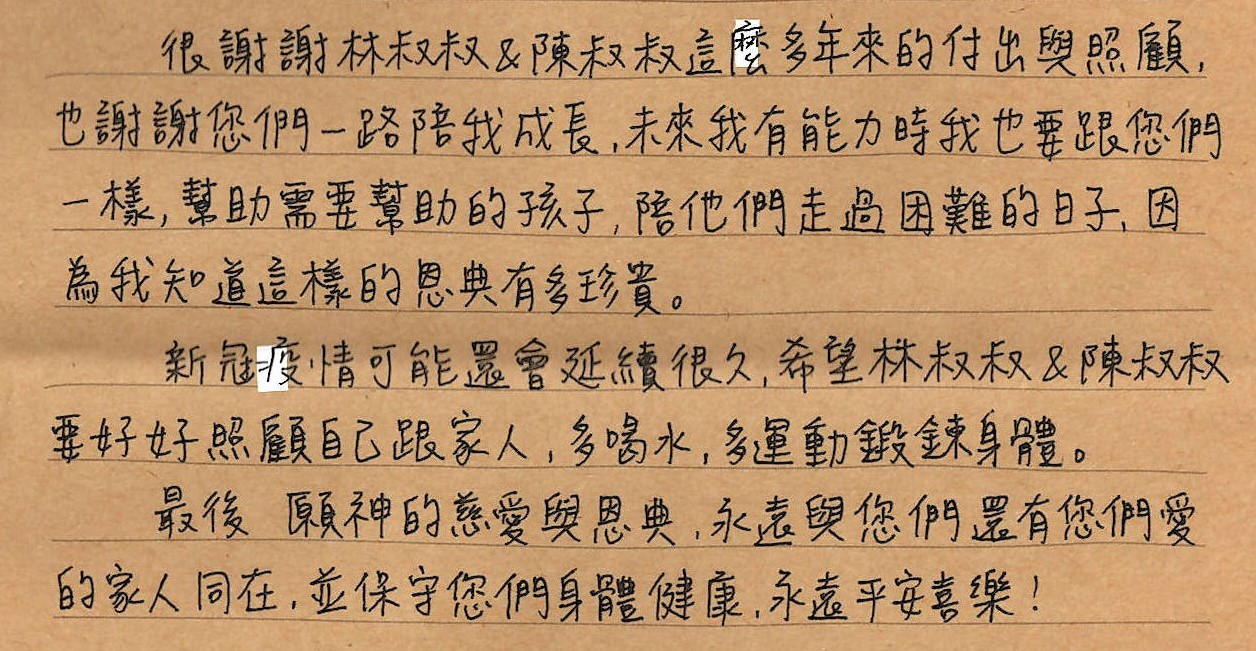 很謝謝林叔叔&陳叔叔這麼多年來的付出與照顧,
也謝謝您們一路陪我成長,未來我有能力時我也要跟您們
一樣,幫助需要幫助的孩子,陪他們走過困難的日子,因
為我知道這樣的恩典有多珍貴。
新冠疫情可能還會延續很久,希望林叔叔&陳叔叔
要好好照顧自己跟家人,多喝水,多運動鍛鍊身體。
最後 願神的慈愛與恩典,永遠與您們還有您們愛
的家人同在,並保守您們身體健康,永遠平安喜樂!